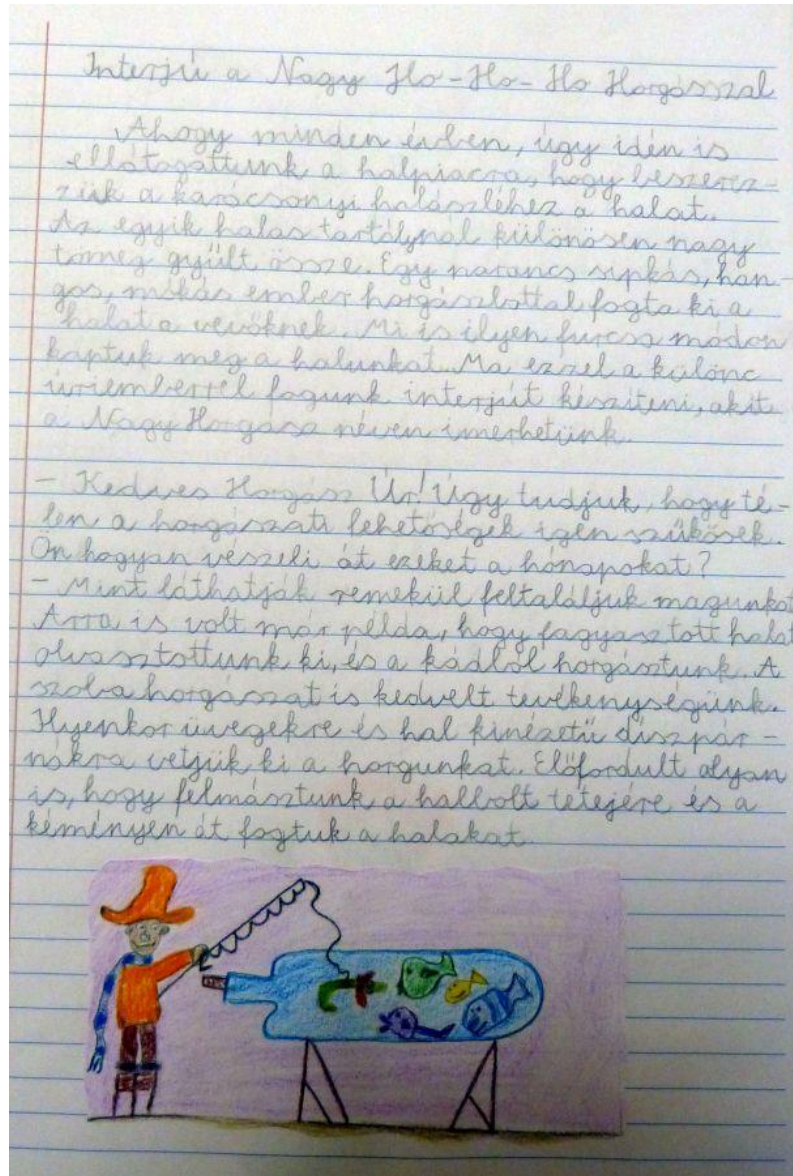 Interjú a Nagy Ho-Ho-Ho Horgásszal
Ahogy minden évben, úgy idén is
ellátogattunk a halpiacra, hogy beszerez-
zük a karácsonyi halászléhez a halat.
Az egyik halas tartálynál különösen nagy
tömeg gyűlt össze. Egy narancs sipkás, han-
gos, mókás ember horgászbottal fogta ki a
halat a vevőknek. Mi is ilyen furcsa módon
kaptuk meg a halunkat. Ma ezzel a különc
úriemberrel fogunk interjút készíteni, akit
a Nagy Horgász néven imerhetünk.
- Kedves Horgász Úr! Úgy tudjuk, hogy té-
len a horgászati lehetőségek igen szűkösek.
Ön hogyan vészeli át ezeket a hónapokat?
- Mint láthatják remekül feltaláljuk magunkat
Arra is volt már példa, hogy fagyasztott halat
olvasztottunk ki, és a kádból horgásztunk. A
szobahorgászat is kedvelt tevékenységünk.
Ilyenkor üvegekre és hal kinézetű díszpár-
nákra vetjük ki a horgunkat. Előfordult olyan
is, hogy felmásztunk a halbolt tetejére és a
kéményen át fogtuk a halakat.